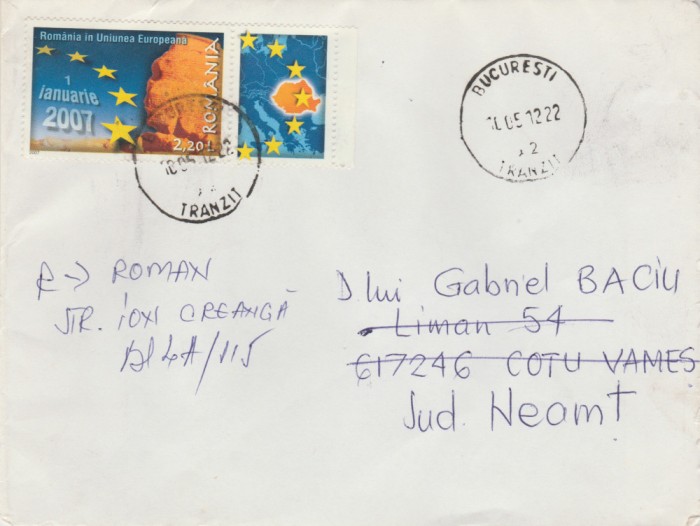 România în Uniunea Europeană
1
ianuarie
2007
ROMÂNIA
2,20
TRANZIT
BUCURESTI
10.05.12.22
2
TRANZIT
R-> ROMAN
STR. ION CREANGĂ
Bl 4A/115
D.lui Gabriel BACIU
Liman 54
617246 COTU VAMES
Jud. Neamt